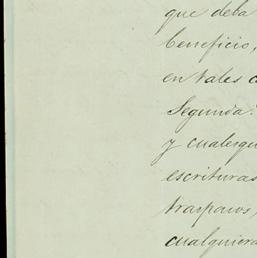 que deba
beneficio,
en tales c
Segunda.
y cualesqu
escrituras
traspasos,
cualquiera